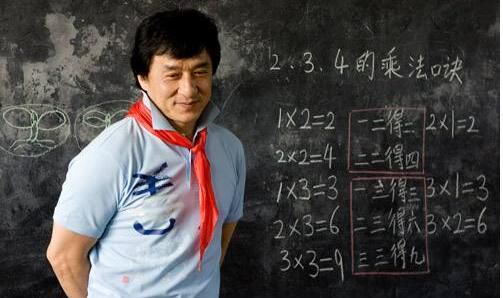 2.3.4的乘法口诀
1×2=2 一二得二 2×1=2
2×2=4 二二得四
1×3=3 一三得三 3×1=3
2×3=6 二三得六 3×2=6
3×3=9 三三得九